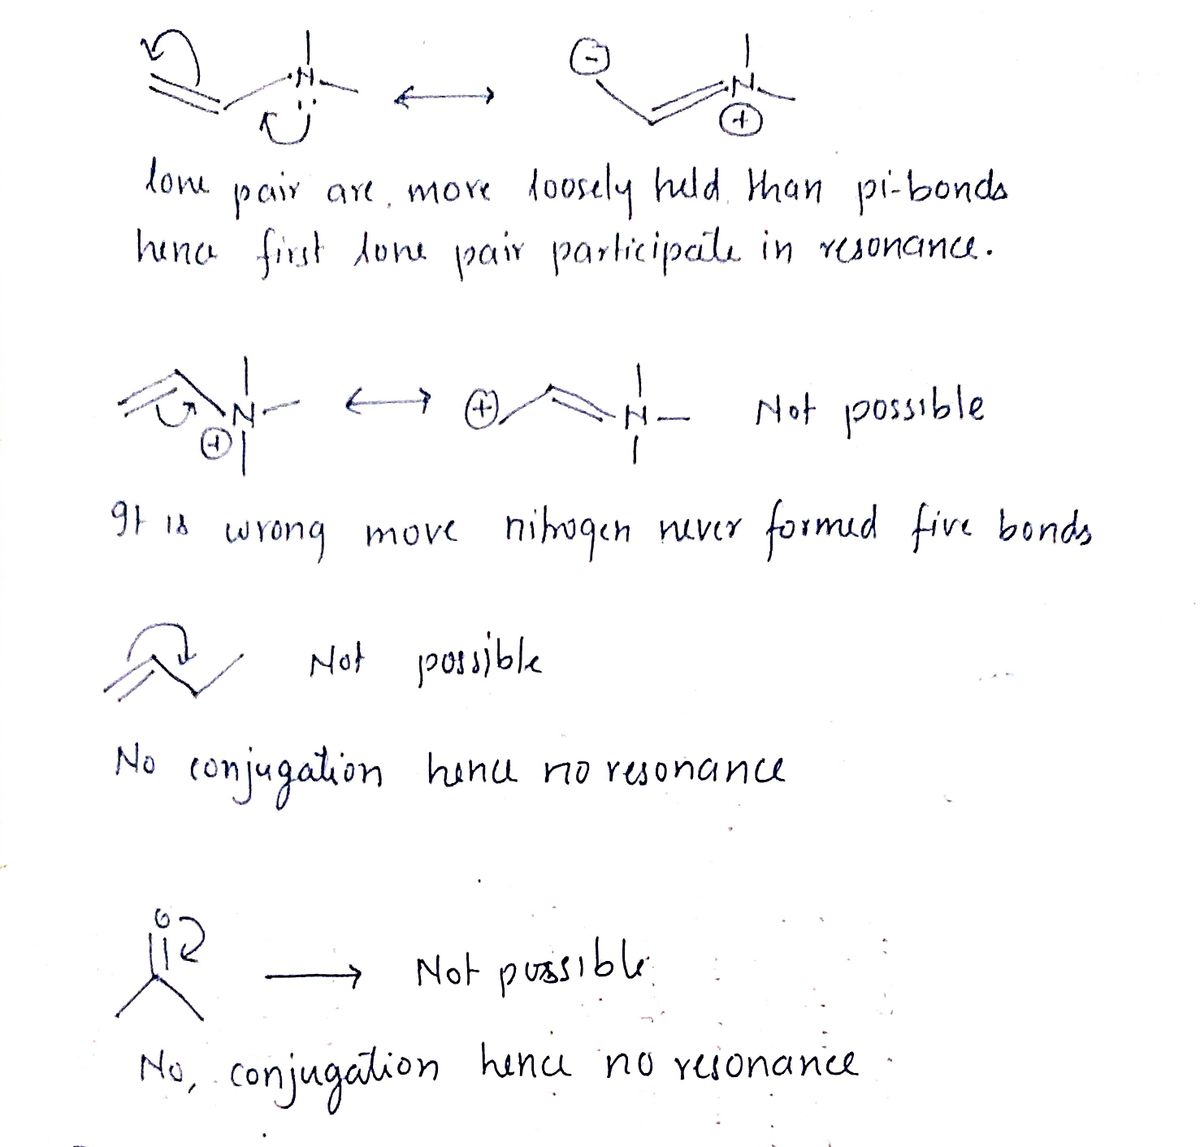 N
⊖
N
⊕
lone pair are, more loosely held than pi-bonds
hence first lone pair participate in resonance.
N
⊕
⊕
N
Not possible
It is wrong move nitrogen never formed five bonds
Not possible
No conjugation hence no resonance
O
Not possible
No, conjugation hence no resonance